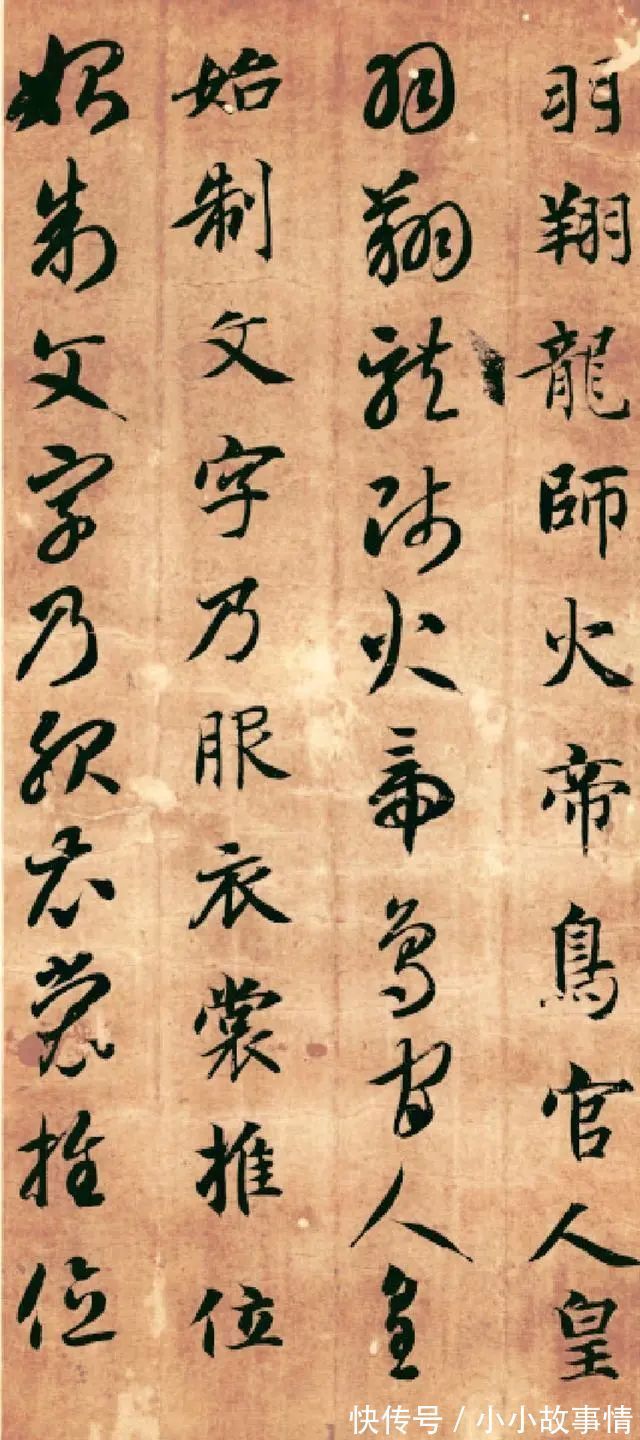 羽翔龍師火帝鳥官人皇
羽翔龍師火帝鳥官人皇
始制文字乃服衣裳推位
始制文字乃服衣裳推位
快传号/小小故事情